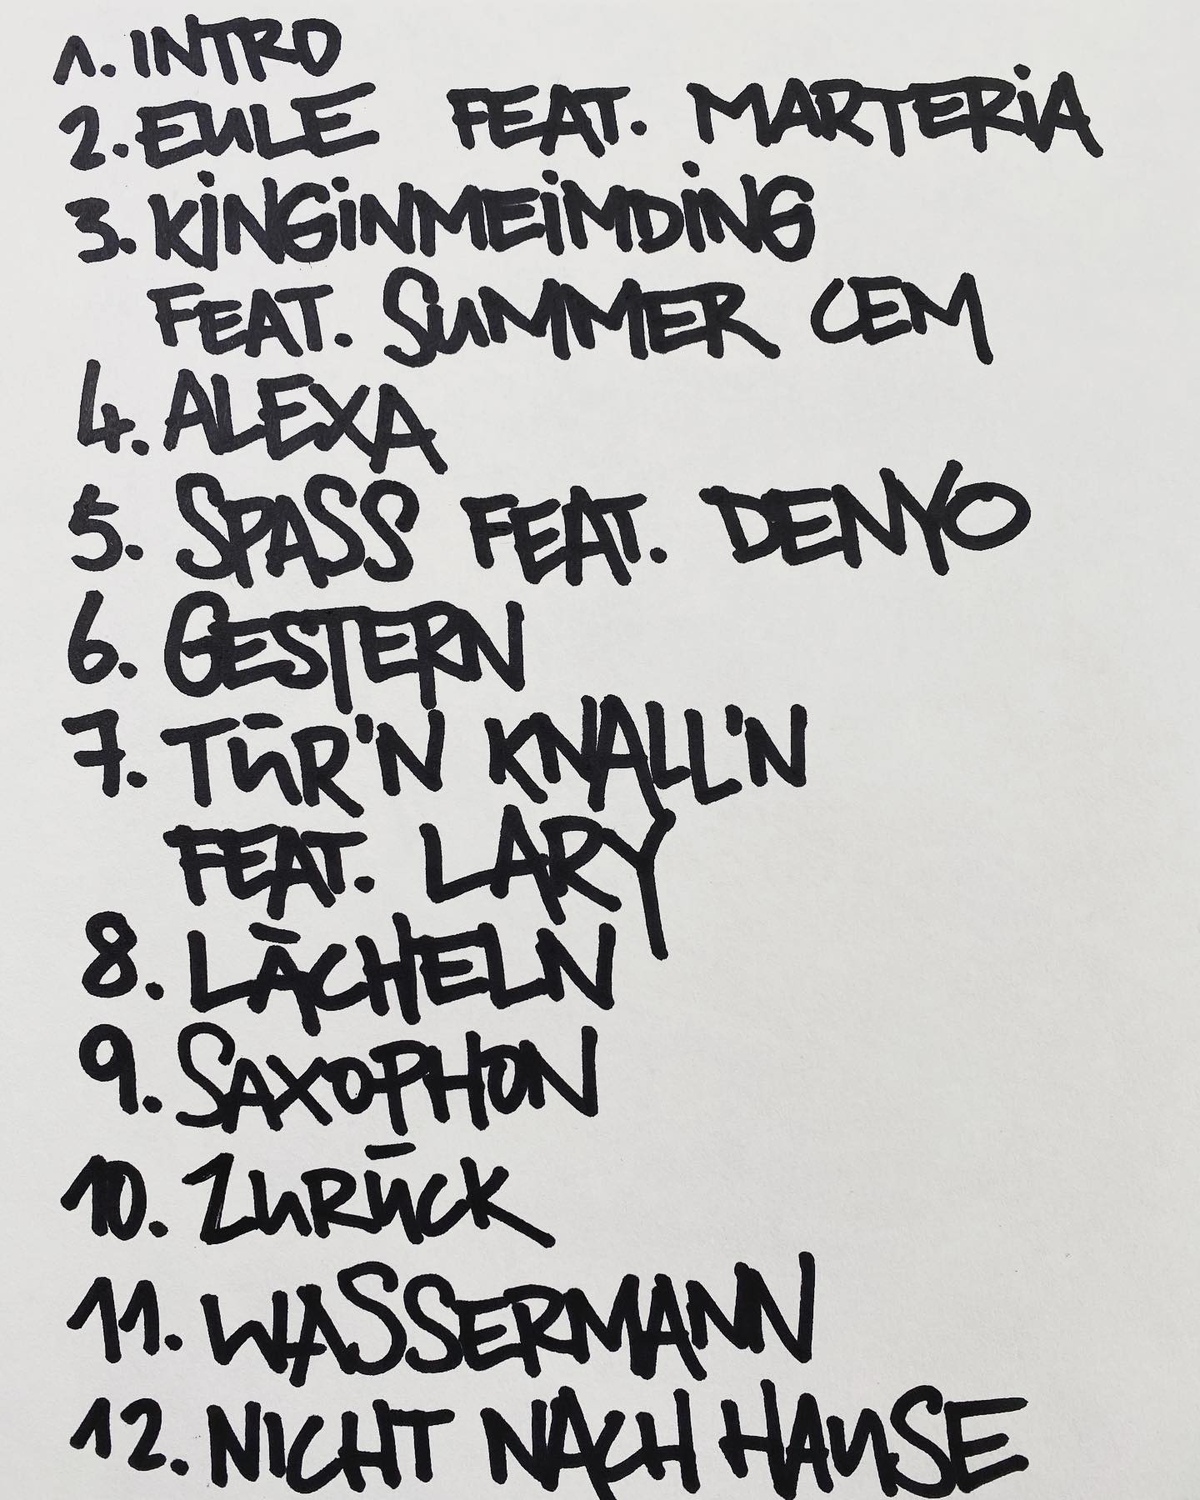 1. INTRO
2. EULE FEAT. MARTERiA
3. KiNGiNMEiMDiNG
FEAT. SUMMER CEM
4. ALEXA
5. SPASS FEAT. DENYO
6. GESTERN
7. TÜR'N KNALL'N
FEAT. LARY
8. LÄCHELN
9. SAXOPHON
10. ZURÜCK
11. WASSERMANN
12. NICHT NACH HAUSE